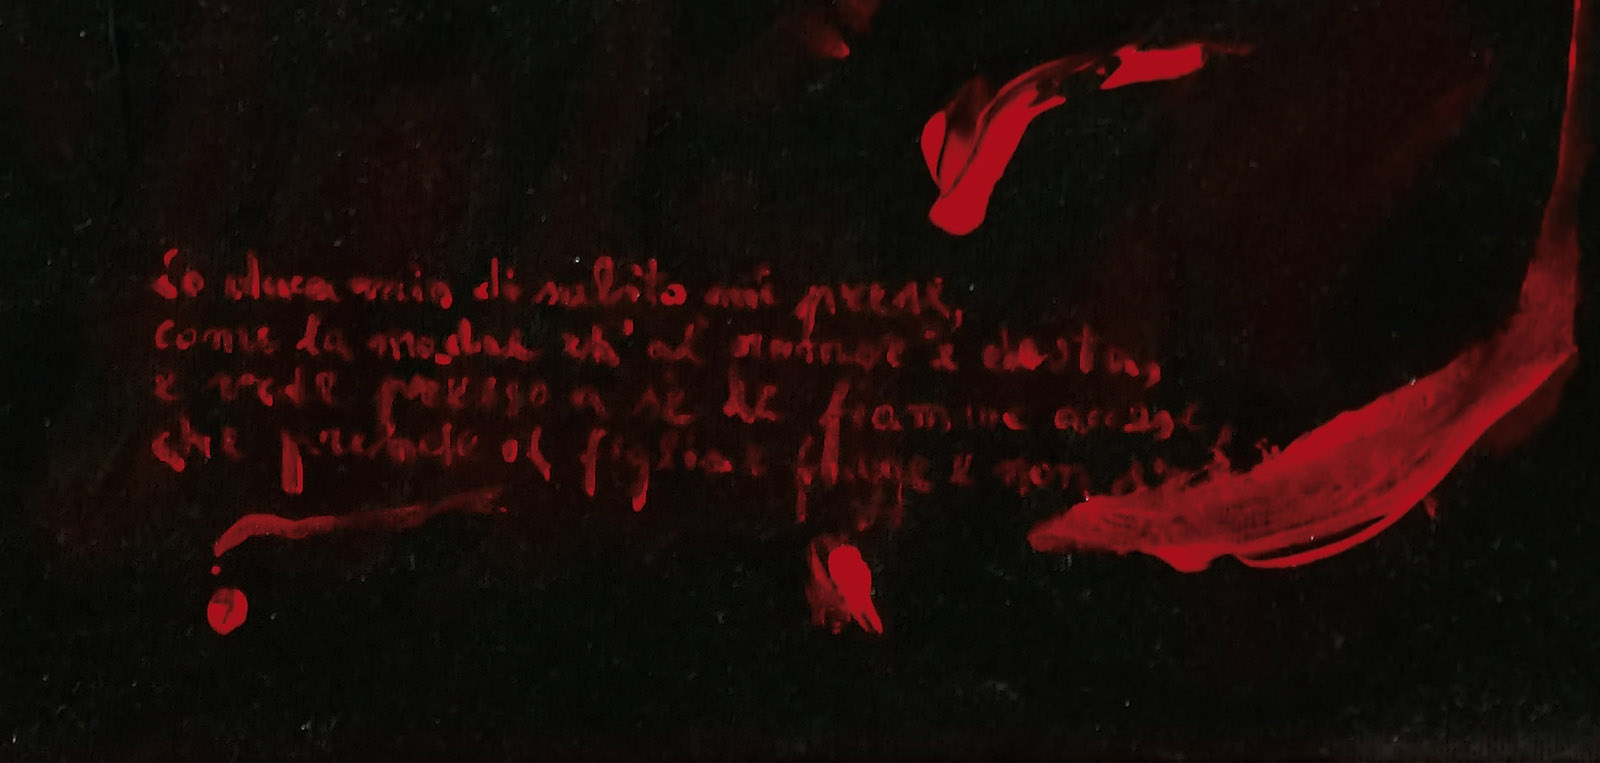 Lo duca mio di subito mi prese,
come la madre ch' al romore è desta,
e vede presso a sé le fiamme accese
che prende il figlio e fugge e non s'